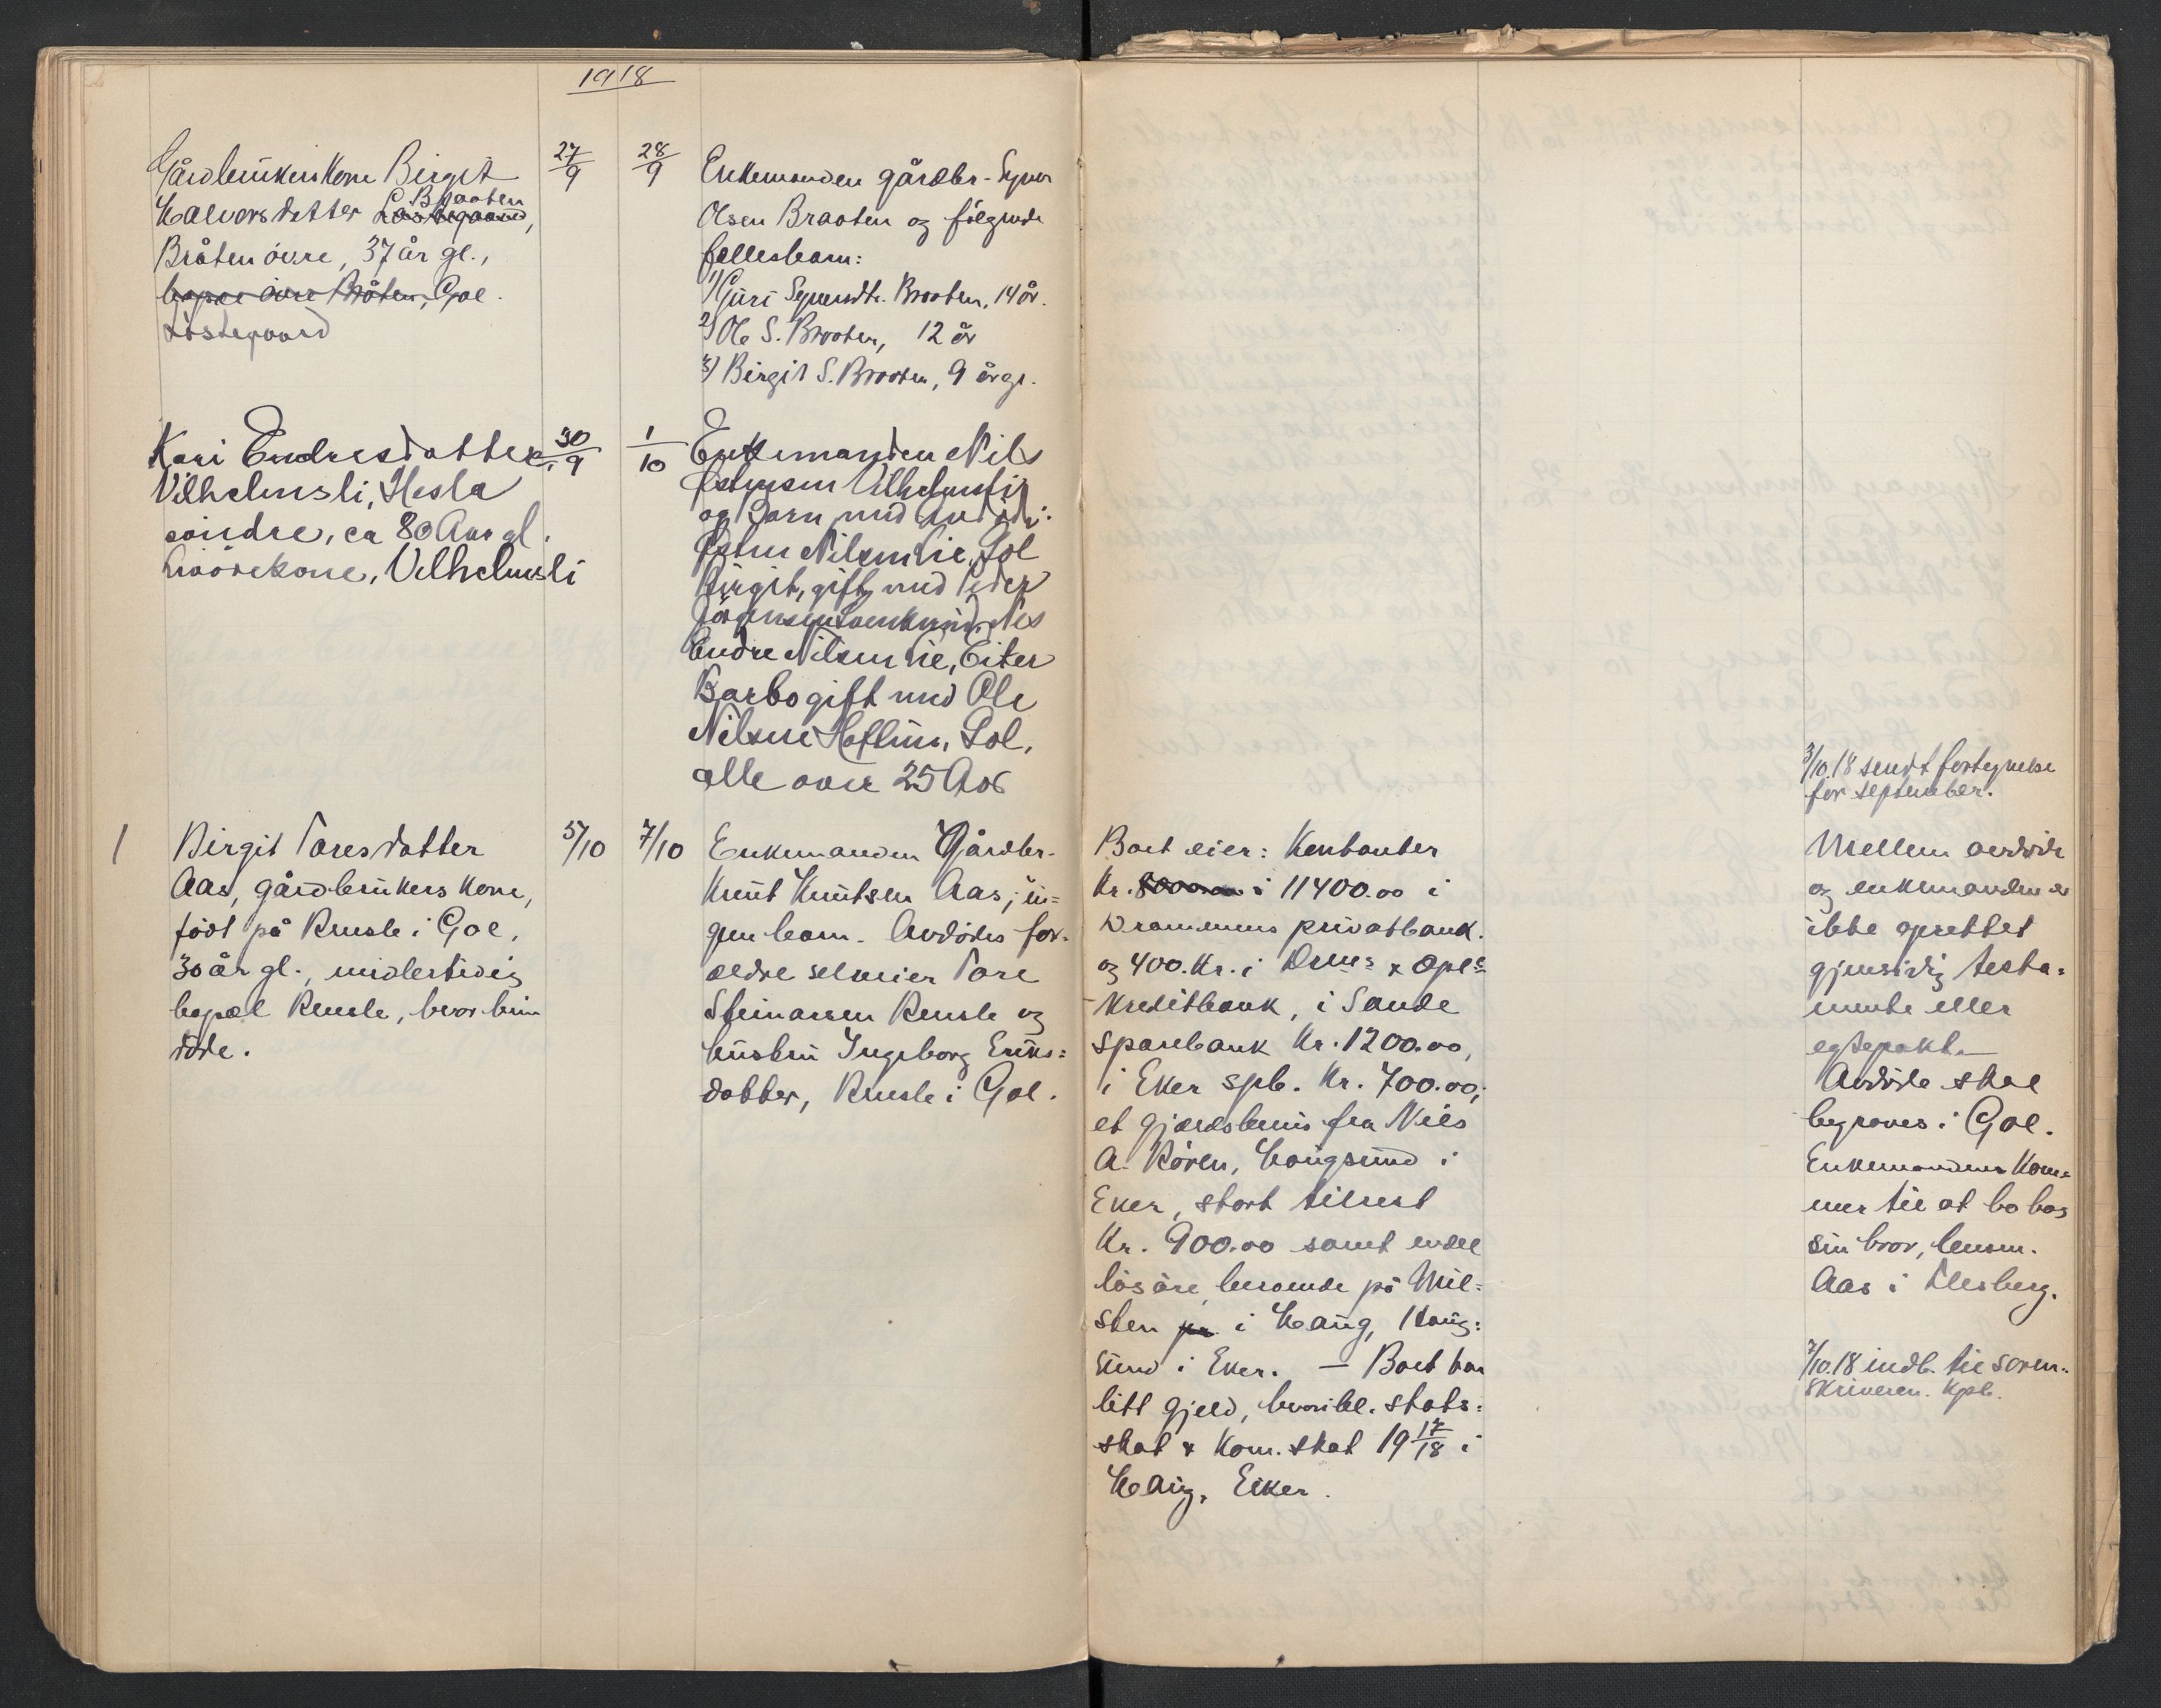 1918
Gårdbrukerkone Birgit
Halvorsdatter Løstegaard,
Braaten
Bråten øvre, 37 år gl.,
bopæl øvre Bråten, Gol.
Løstegaard
27/9
28/9
Enkemanden gårdbr. Syver
Olsen Braaten og følgende
fellesbarn:
1) Guri Syversdtr. Braaten, 14 år.
2) Ole S. Braaten, 12 år
3) Birgit S. Braaten, 9 år gl.
Kari Endresdatter
Vilhelmsli, Hesla
søndre, ca 80 Aar gl.
Livørekone, Vilhelmsli
30/9
1/10
Enkemanden Nils
Østensen Vilhelmsli
og Barn med avdøde:
Østen Nilsen Lie, Gol
Birgit, gift med Peder
Jørgensen Nes
Endre Nilsen Lie, Eiker
Barbo gift med Ole
Nilsen Haftun, Gol,
alle over 25 Aar
1
Birgit Toresdatter
Aas, gårdbrukers kone,
født på Rusle i Gol,
30 år gl., midlertidig
bopæl Rusle, hvor hun
døde.
5/10
7/10
Enkemanden Gårdbr.
Knut Knutsen Aas; in=
gen barn. Avdødes for=
ældre selveier Tore
Steinarsen Rusle og
hustru Ingeborg Eriks=
datter, Rusle i Gol.
Boet eier: Kontanter
Kr. i 11400.00 i
Drammens privatbank.
og 400. Kr. i Drms & Opls
Kreditbank, i Sande
sparebank Kr. 1200.00,
i Eker spb. Kr. 700.00;
et gjældsbevis fra Nils
A. Røren, Hougsund i
Eker, stort tilrest
Kr. 900.00 samt endel
løsøre beroende på Mil=
sten på i Haug, Houg=
sund i Eker. — Boet har
litt gjeld, hvoribl. stats=
skat & Kom. skat 1917/18 i
Haug, Eiker.
3/10.18 sendt fortegnelse
for september.
Mellem avdøde
og enkemanden er
ikke oprettet
gjensidig testa=
mente eller
egtepakt.—
Avdøde skal
begraves i Gol.
Enkemanden kom=
mer til at bo hos
sin bror, lensm.
Aas i Flesberg.
7/10.18 indb. til soren=
skriveren. Kpb.